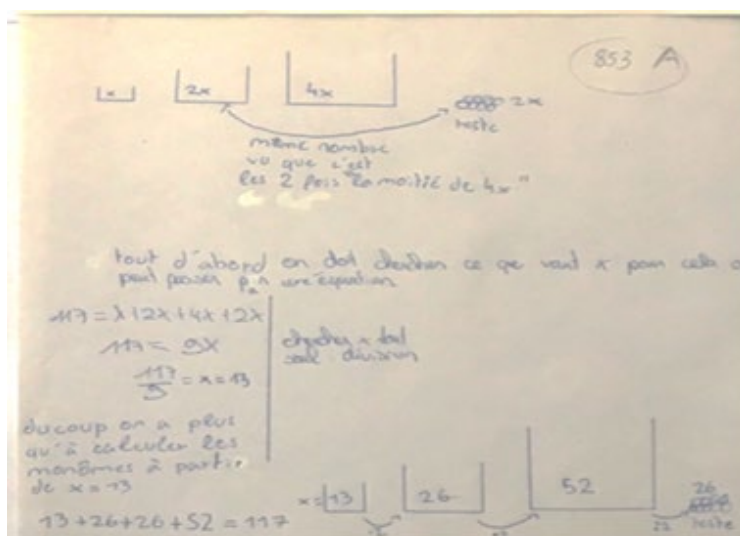 853 A
x
2x
4x
2x
reste
même nombre
vu que c'est
les 2 fois la moitié de 4x"
tout d'abord on doit chercher ce que vaut x pour cela o
peut poser une équation
117 = x+2x+4x+2x
117 = 9x
117/9 = x = 13
chercher x
division
ducoup on a plus
qu'à calculer les
monômes à partir
de x = 13
13+26+26+52 = 117
x = 13
26
52
26
reste